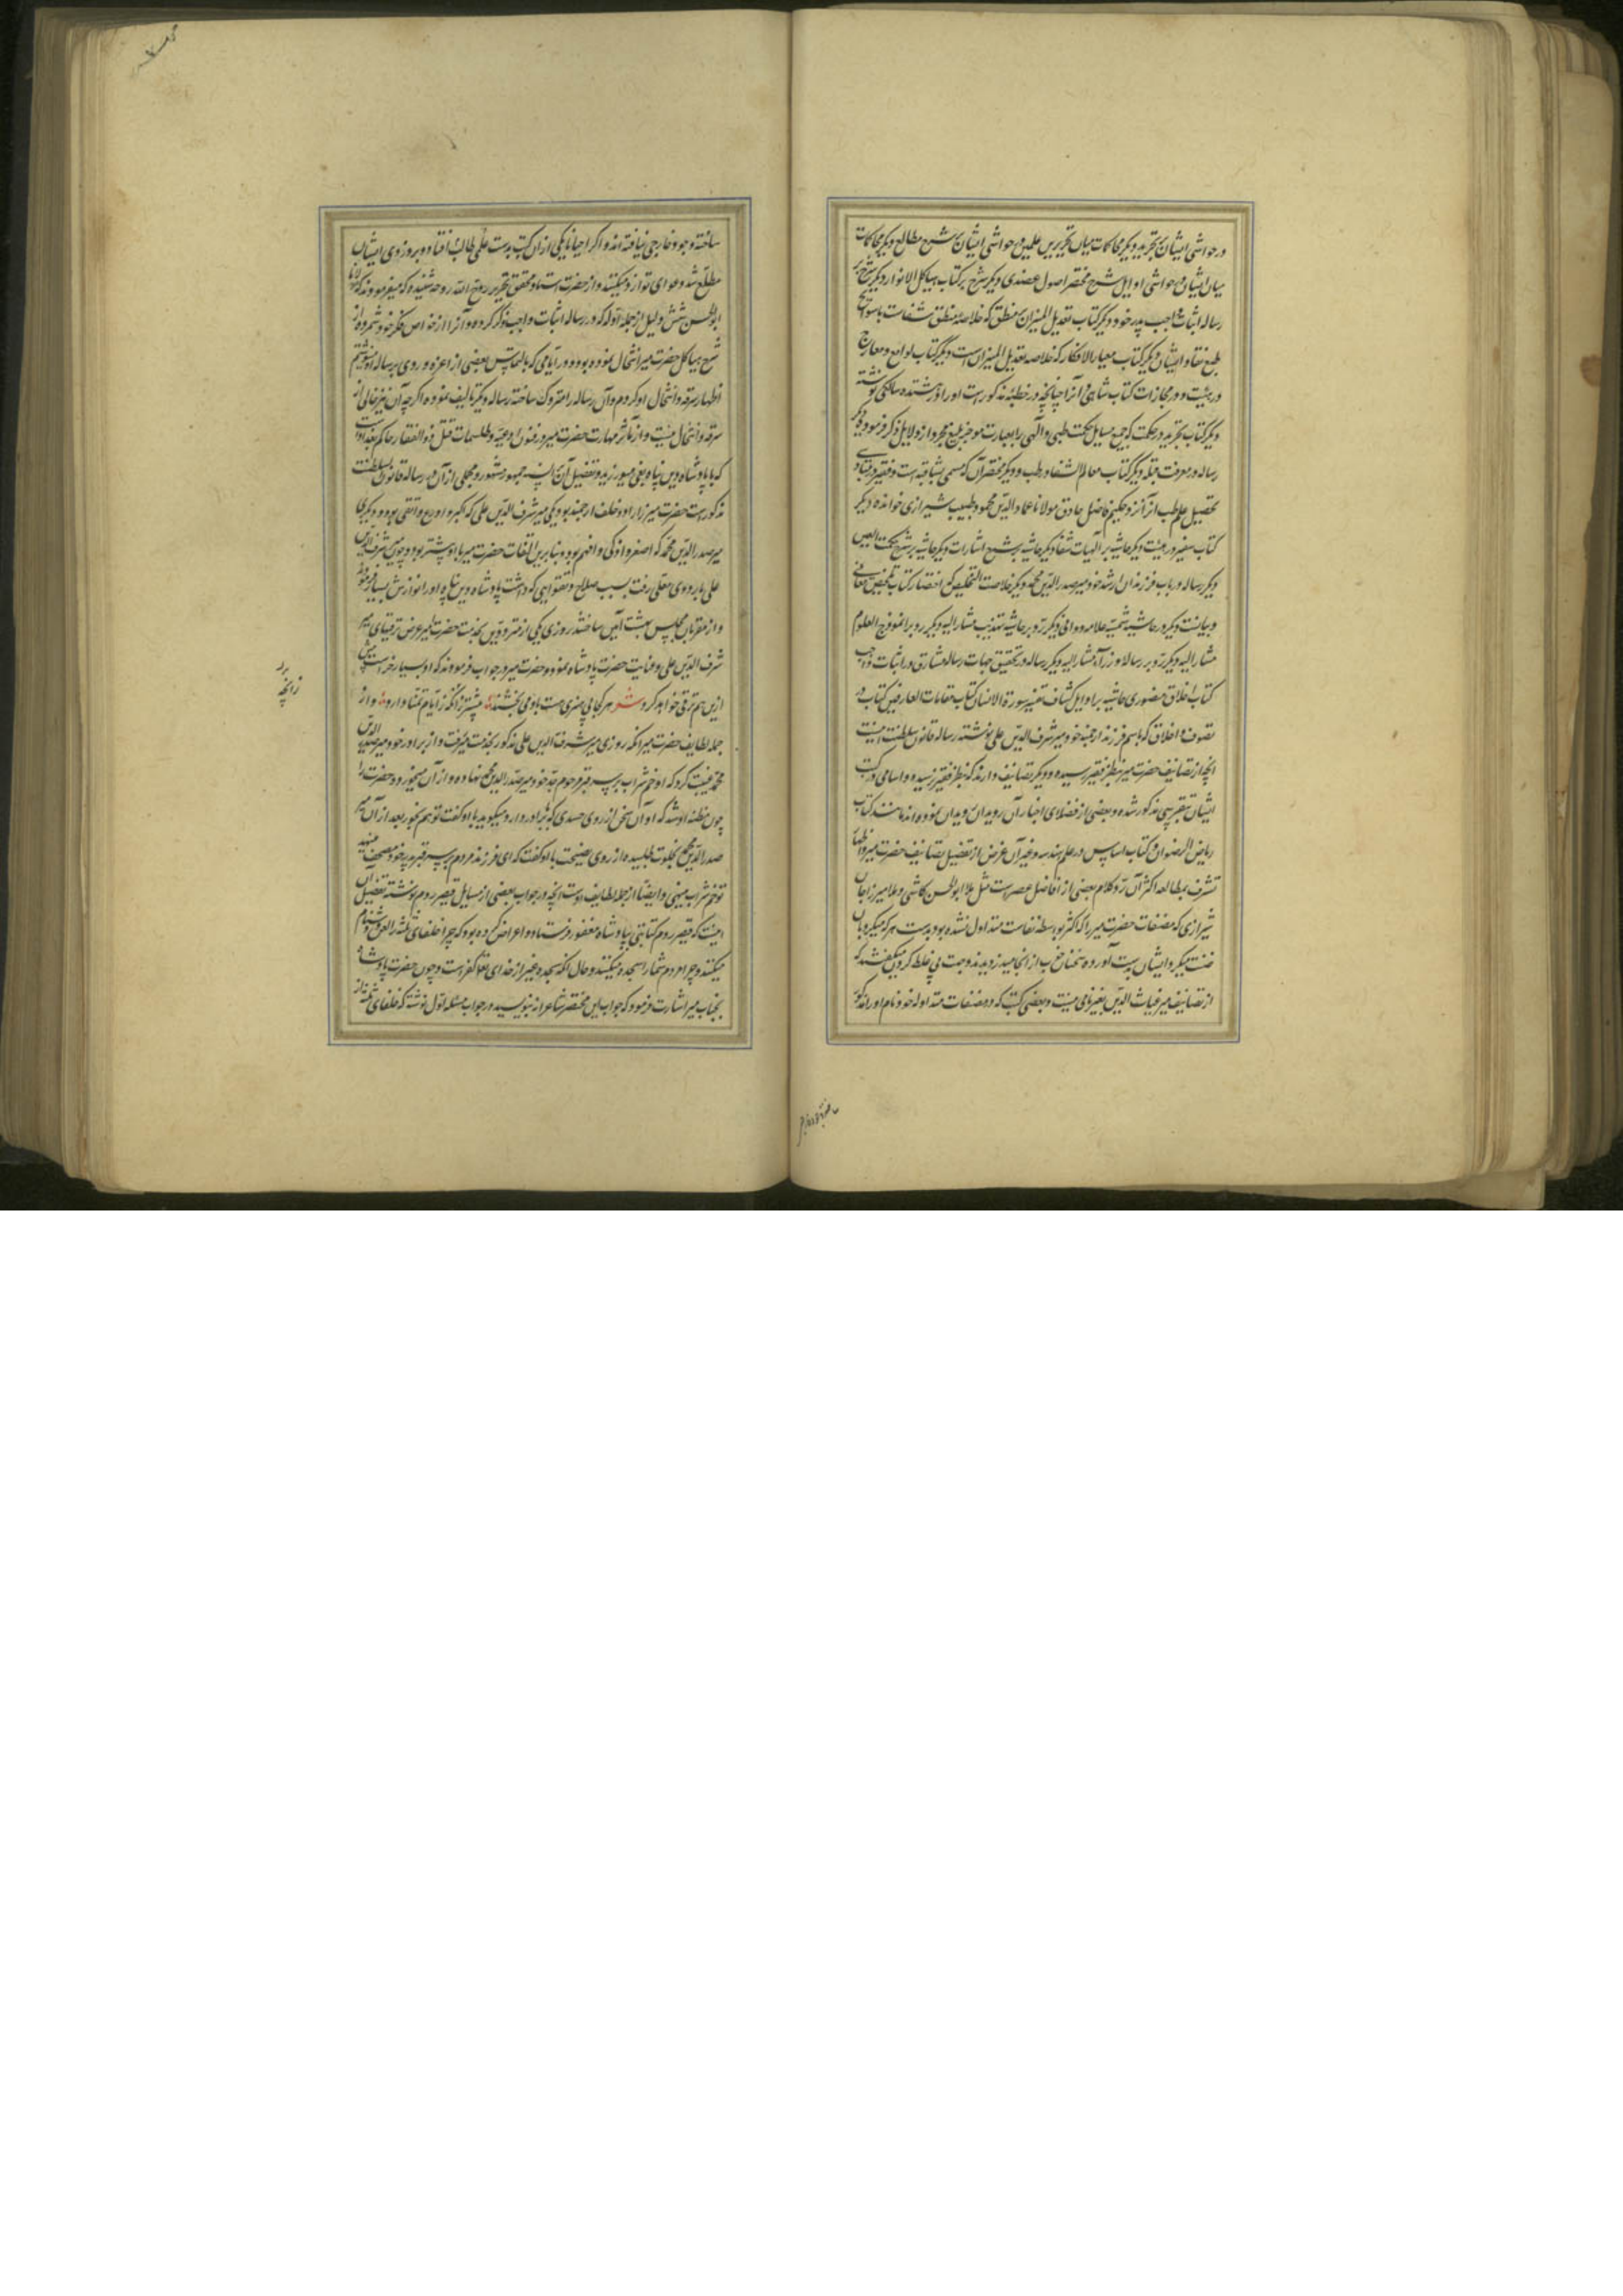 در حواشی ایشان بر تجرید و دیگر محاکمات میان تحریرین علمین در حواشی ایشان بر شرح مطالع و دیگر محاکمات
میان ایشان در حواشی اوایل شرح مختصر اصول عضدی و دیگر شرح بر کتاب هیاکل الانوار و دیگر شرح بر
رساله اثبات واجب پدر خود و دیگر کتاب تعدیل المیزان در منطق که خلاصه منطق شفاست با سوانح
طبع نقاد ایشان و دیگر کتاب معیار الافکار که خلاصه تعدیل المیزان است و دیگر کتاب لوامع و معارج
در هیئت و در مجازات کتاب شاهی و آنرا چنانچه در خطبه مذکور است او را در هشتده سالگی نوشته
دیگر کتاب تجرید در حکمت که جمیع مسایل حکمت طبیعی و الهی را بعبارت موجز بلیغ مجرد از دلایل ذکر فرموده دیگر
رساله در معرفت قبله و دیگر کتاب معالم الشفا در طب و دیگر مختصر آن که مسمی بشافیه است و فقیر در مبادی
تحصیل علم طب آنرا نزد حکیم فاضل حاذق مولانا عماد الدین محمود طبیب شیرازی خوانده دیگر
کتاب سفیر در هیئت و دیگر حاشیه بر الهیات شفا و دیگر حاشیه بر شرح اشارات و دیگر حاشیه بر شرح حکمت العین
و دیگر رساله در باب فرزندان ارشد خود میر صدر الدین محمد و دیگر خلاصة التلخیص که اختصار کتاب تلخیص معانی
و بیانست و دیگر رد بر حاشیه شمسیه علامه دوانی و دیگر رد بر حاشیه تهذیب مشار الیه و دیگر رد بر انموذج العلوم
مشار الیه و دیگر رد بر رساله زوراء مشار الیه و دیگر رساله در تحقیق جهات رساله مشارق در اثبات واجب
کتاب اخلاق منصوری حاشیه بر اوایل کشاف تفسیر سورة الانسان کتاب مقامات العارفین کتاب در
تصوف و اخلاق که باسم فرزند ارجمند خود میر شرف الدین علی نوشته رساله قانون سلطنت اینست
آنچه از تصانیف حضرت میر بنظر فقیر رسیده و دیگر تصانیف دارند که بنظر فقیر نرسیده و اسامی در کتب
ایشان بتقریبی مذکور شده و بعضی از فضلای اخیار آن رویدان ویدان نموده اند مانند کتاب
ریاض الرضوان و کتاب اساس در علم هندسه و غیر آن غرض از تفصیل تصانیف حضرت میر و اظهار
تشرف بمطالعه اکثر آن رد کلام بعضی از افاضل عصر است مثل ملا ابو الحسن کاشی و ملا میرزا جان
شیرازی که مصنفات حضرت میر را که اکثر بواسطه نفاست متداول نشده بود بدست هر که میگردیدان
ضنت میکرد ایشان بدست آورده سخنان خوب از آنجا میدزدیدند و جهت پی غلط کردن میگفتند که
از تصانیف میر غیاث الدین بغیر نامی نیست و بعضی کتب که در مصنفات متداوله خود نام او را مذکور
ساخته وجود خارجی نیافته اند و اگر احیانا یکی از آن کتب بدست علمی طالب افتاده و بر دزدی ایشان
مطلع شد دعوای توارد میکنند و از حضرت استاد محقق تحریر روح الله روحه شنیده که میفرمودند که مولانا
ابو الحسن شش دلیل از جمله ادله که در رساله اثبات واجب ذکر کرده و آنرا از خواص فکر خود شمرده از
شرح هیاکل حضرت میر انتحال نموده بود و در ایامی که بالتماس بعضی از اعزه در روی بر رساله او مینوشتم
اظهار سرقه و انتحال او کردم و آن رساله را متروک ساخته رساله دیگر تالیف نموده اگر چه آن نیز خالی از
سرقه و انتحال نیست و از مآثر مهارت حضرت میر در فنون ادعیه و طلسمات قتل ذو الفقار حاکم بغداد است
که با پادشاه دین پناه بغی میورزید و تفصیل آن بر السنه جمهور مشهور و مجملی از آن در رساله قانون سلطنت
مذکور است حضرت میر را دو خلف ارجمند بود یکی میر شرف الدین علی که اکبر و اورع و اتقی بود و دیگری
میر صدر الدین محمد که اصغر و اذکی و افهم بود و بنابرین التفات حضرت میر با او بیشتر بود و چون میر شرف الدین
علی باردوی معلی رفت بسبب صلاح و تقوایی که داشت پادشاه دین پناه او را نوازش بسیار فرموده
و از مقربان مجلس بهشت آیین ساختند روزی یکی از مترددین بخدمت حضرت میر عرض ترقیهای میر
شرف الدین علی و عنایت حضرت پادشاه نموده حضرت میر در جواب فرمودند که او بسیار خر است بیش
ازین هم ترقی خواهد کرد شعر هر کجا بی هنری هست باو می بخشند بیشتر زانکه ز ایام تمنا دارد و از
جمله لطایف حضرت میر آنکه روزی میر شرف الدین علی مذکور بخدمت میر رفت و از برادر خود میر صدر الدین
محمد غیبت کرد که او خم شراب بر سر قبر مرحوم جد خود میر صدر الدین محمد نهاده و از آن میخورد و حضرت را
چون مظنه او شد که او آن سخن از روی حسدی که با برادر دارد میگوید با او گفت تو هم بخور بعد از آن میر
صدر الدین محمد بخلوت طلبیده از روی نصیحت با او گفت که ای فرزند مردم بر سر قبر پدر خود مصحف مینهند
تو خم شراب مینهی و ایضا از جمله لطایف اوست آنچه در جواب بعضی از مسایل قیصر روم نوشته تفصیل آن
اینست که قیصر روم کتابتی بپادشاه مغفور فرستاد و اعراض کرده بود که چرا خلفای ثلثه را لعن و دشنام
میکنند و چرا مردم شما را سجده میکنند و حال آنکه سجده بغیر از خدای تعالی کفر است و چون حضرت پادشاه
بجناب میر اشارت فرمود که جواب این مختصر شاعرانه بنویسید در جواب مسئله اول نوشته که خلفای ثلثه از